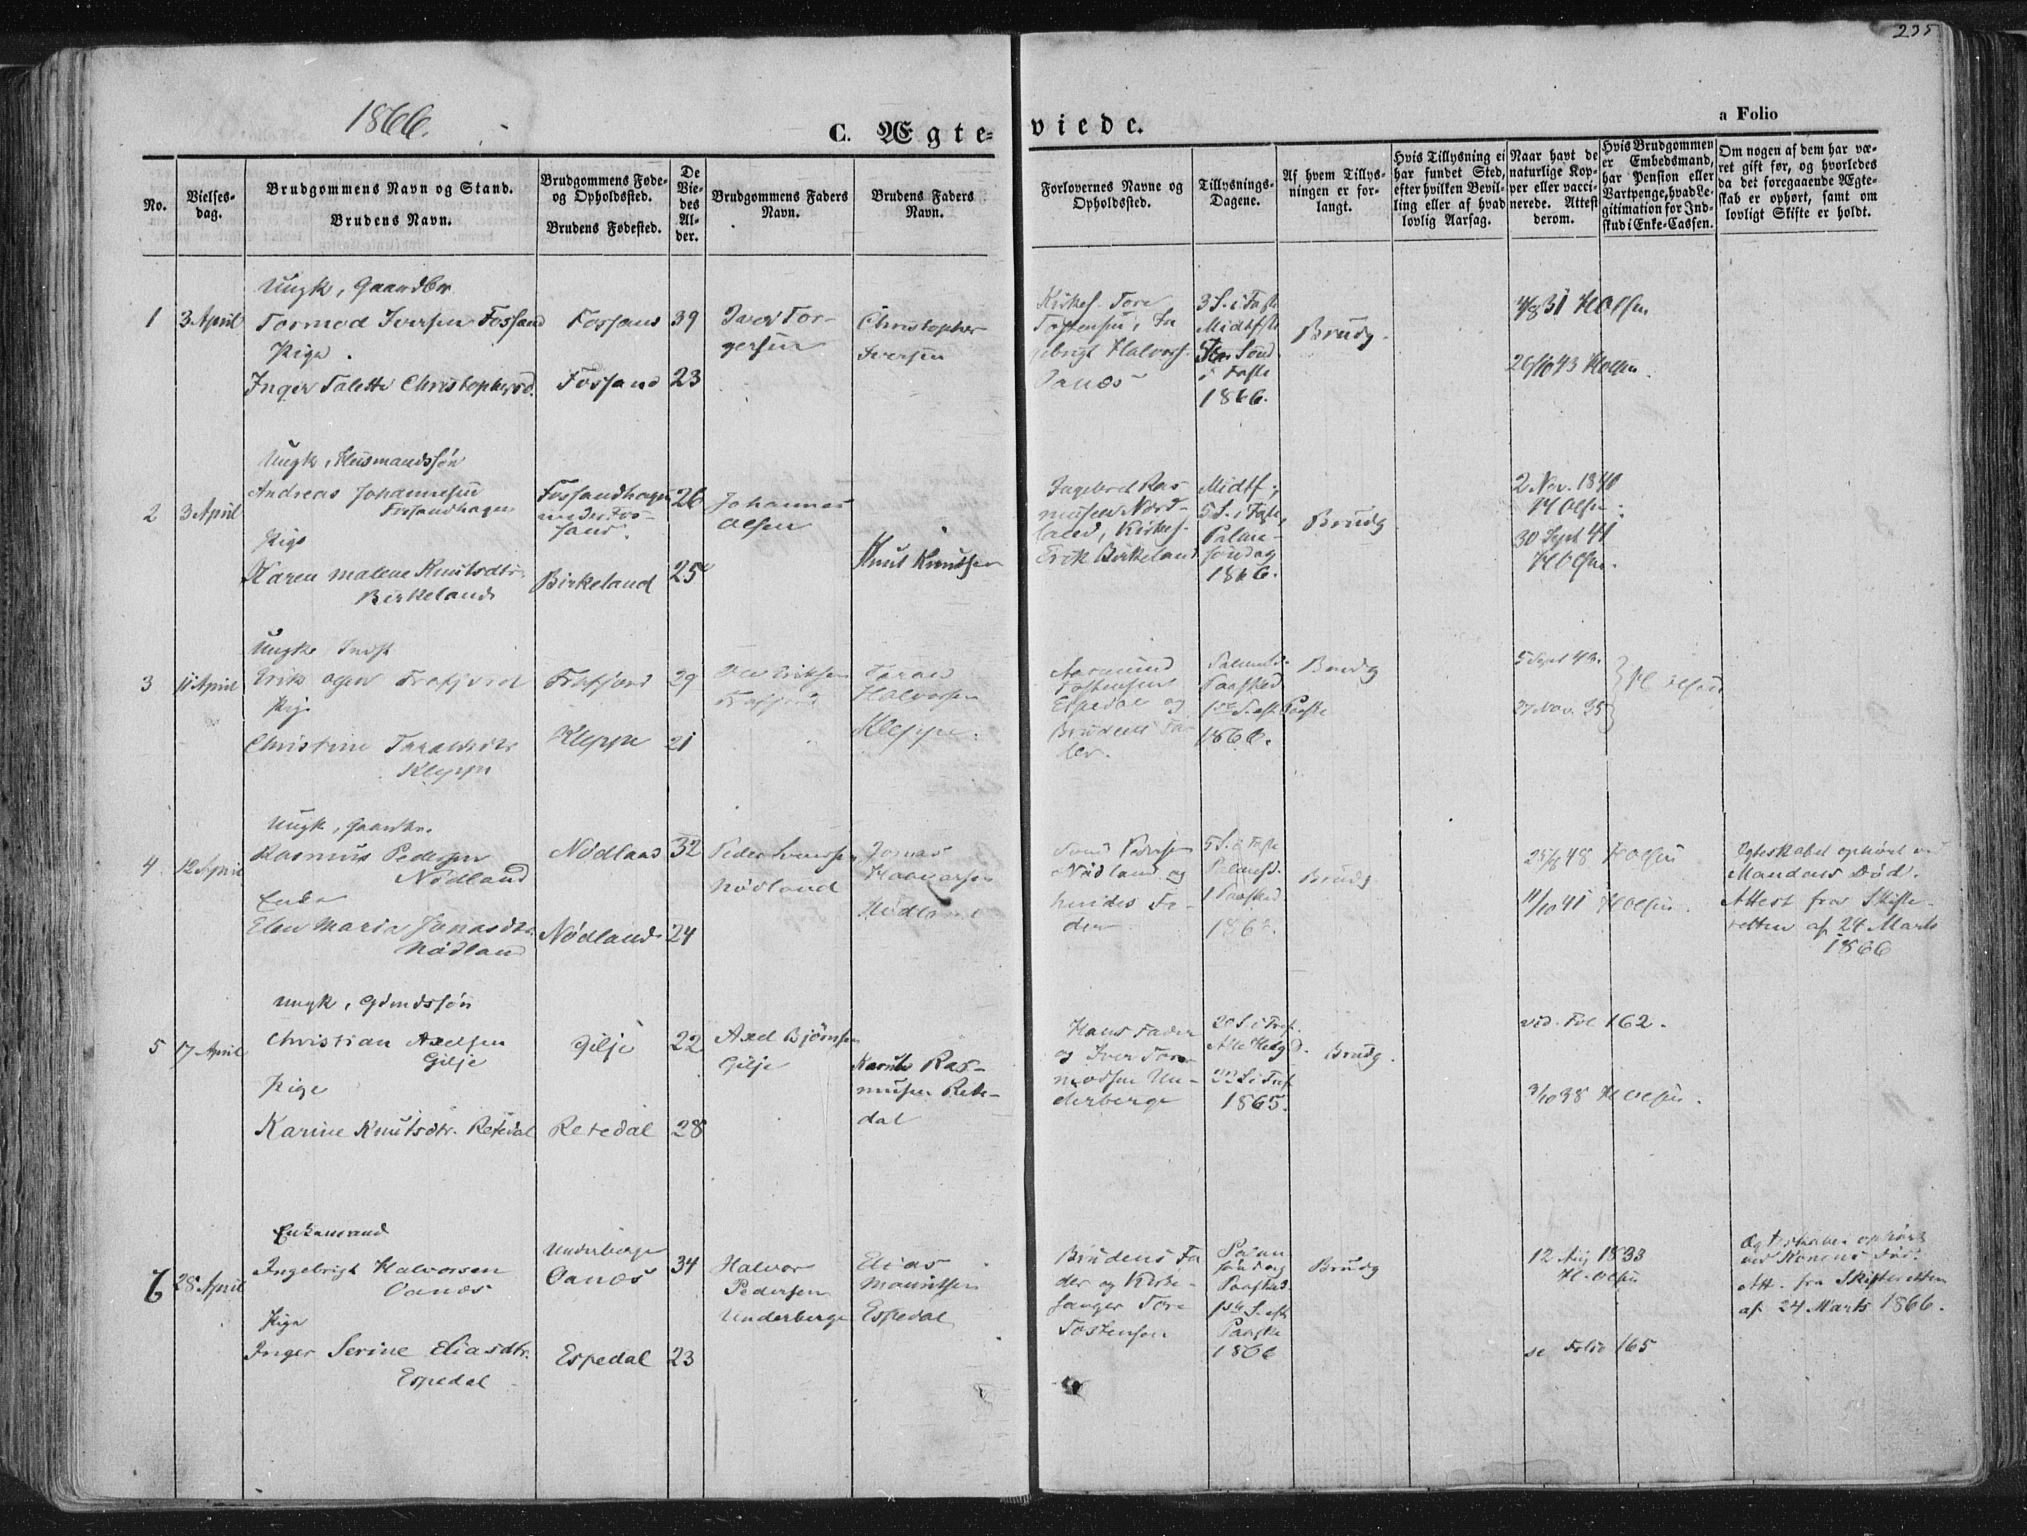 235
1866.
C. Ægte-
viede.
a Folio
No.
Vielses-
dag.
Brudgommens Navn og Stand.
Brudens Navn.
Brudgommens Føde-
og Opholdssted.
Brudens Fødested.
De
Vie-
des
Al-
der.
Brudgommens Faders
Navn.
Brudens Faders
Navn.
Forlovernes Navne og
Opholdssted.
Tillysnings-
Dagene.
Af hvem Tillys-
ningen er for-
langt.
Hvis Tillysning ei
har fundet Sted,
efter hvilken Bevil-
ling eller af hvad
lovlig Aarsag.
Naar havt de
naturlige Kop-
per eller vacci-
nerede. Attest
derom.
Hvis Brudgommen
er Embedsmand,
har Pension eller
Vartpenge, hvad Le-
gitimation for Ind-
skud i Enke-Cassen.
Om nogen af dem har væ-
ret gift før, og hvorledes
da det foregaaende Ægte-
skab er ophørt, samt om
lovligt Skifte er holdt.
1
3 April
Ungk, Gaardbr
Tormod Iversen Fossand
Pige.
Inger Talette Christophersd.
Fossand
Fossand
39
23
Iver Tor-
gersen
Christopher
Iversen
Kirkes. Tore
Tostensen, In
gebrigt Halvors.
Oanæs
3 S. i Faste
Midtfste
5te Sønd
i Faste
1866.
Brudg.
4/8 31 H Olsen
26/10 43 H Olsen.
2
3 April
Ungk, Husmandssøn
Andreas Johannesen
Fossandhagen
Pige
Karen Malene Knutsdtr
Birkeland
Fossandhagen
under Fos-
sand.
Birkeland
26
25
Johannes
Olsen
Knut Knutsen
Ingebret Ras
musen Nord-
land, Kirkes.
Erik Birkeland
Midtf
5 S. i Faste,
Palme-
søndag
1866.
Brudg
2 Nov. 1840
H Olsen.
30 Sept 41
H Olsen.
3
11 April
Ungk Indst
Erik Frafjord
Pige
Christine Taraldsdtr
Kleppe
Frafjord
Kleppe
29
21
Ole Eriksen
Frafjord
Tarald
Halvorsen
Kleppe.
Aasmund
Tostensen
Espedal og
Brudens Fa-
der.
Palmesd.
Paasked
1ste S. eft Paaske
1866.
Brudg
5 Sept 43.
27 Nov.
H Olsen
4
12 April
Ungk, Gaardbr.
Rasmus Pedersen
Nødland
Enke
Elen Maria Jonasdtr.
Nødland
Nødland
Nødland
32
24
Peder Iversen
Nødland
Jonas
Haavorsen
Nødland
Pedersen
Nødland og
hendes Fa-
der
5 S. i Faste
Palmesd.
1 Paasked
Brudg
48 H Olsen
11/10 41 H Olsen.
Egteskabet ophørt ved
Mandens Død.
Attest fra Skifte-
retten af 24 Marts
1866
5
17 April
Ungk, Gdmdssøn
Christian Axelsen
Gilje
Pige
Karine Knutsdtr. Retedal
Gilje
Retedal
22
28
Axel Bjørnsen
Gilje
Knut Ras-
musen Rete-
dal
Hans Fader
og Iver Tor-
modsen Un-
derberge
20 S. i Tref.
Alle Helgd.
22 S i Tref
1865.
Brudg.
vid. Fol 162.
3/10 38 H Olsen.
6
28 April
Enkemand
Ingebrigt Halvorsen
Oanæs
Pige
Inger Serine Eliasdtr.
Espedal
Underberge
Oanæs
Espedal
34
23
Halvor
Pedersen
Underberge
Elias
Mauritsen
Espedal
Brudens Fa
der og Kirke-
sanger Tore
Tostensen
Palm
søndag
Paasked.
1ste S. eft
Paaske
1866
Brudg
12 Aug 1833
H. Olsen
se Folio 165
Ægteskabet ophørt
ved Konens Død.
Att. fra Skifteretten
af 24 Marts 1866.